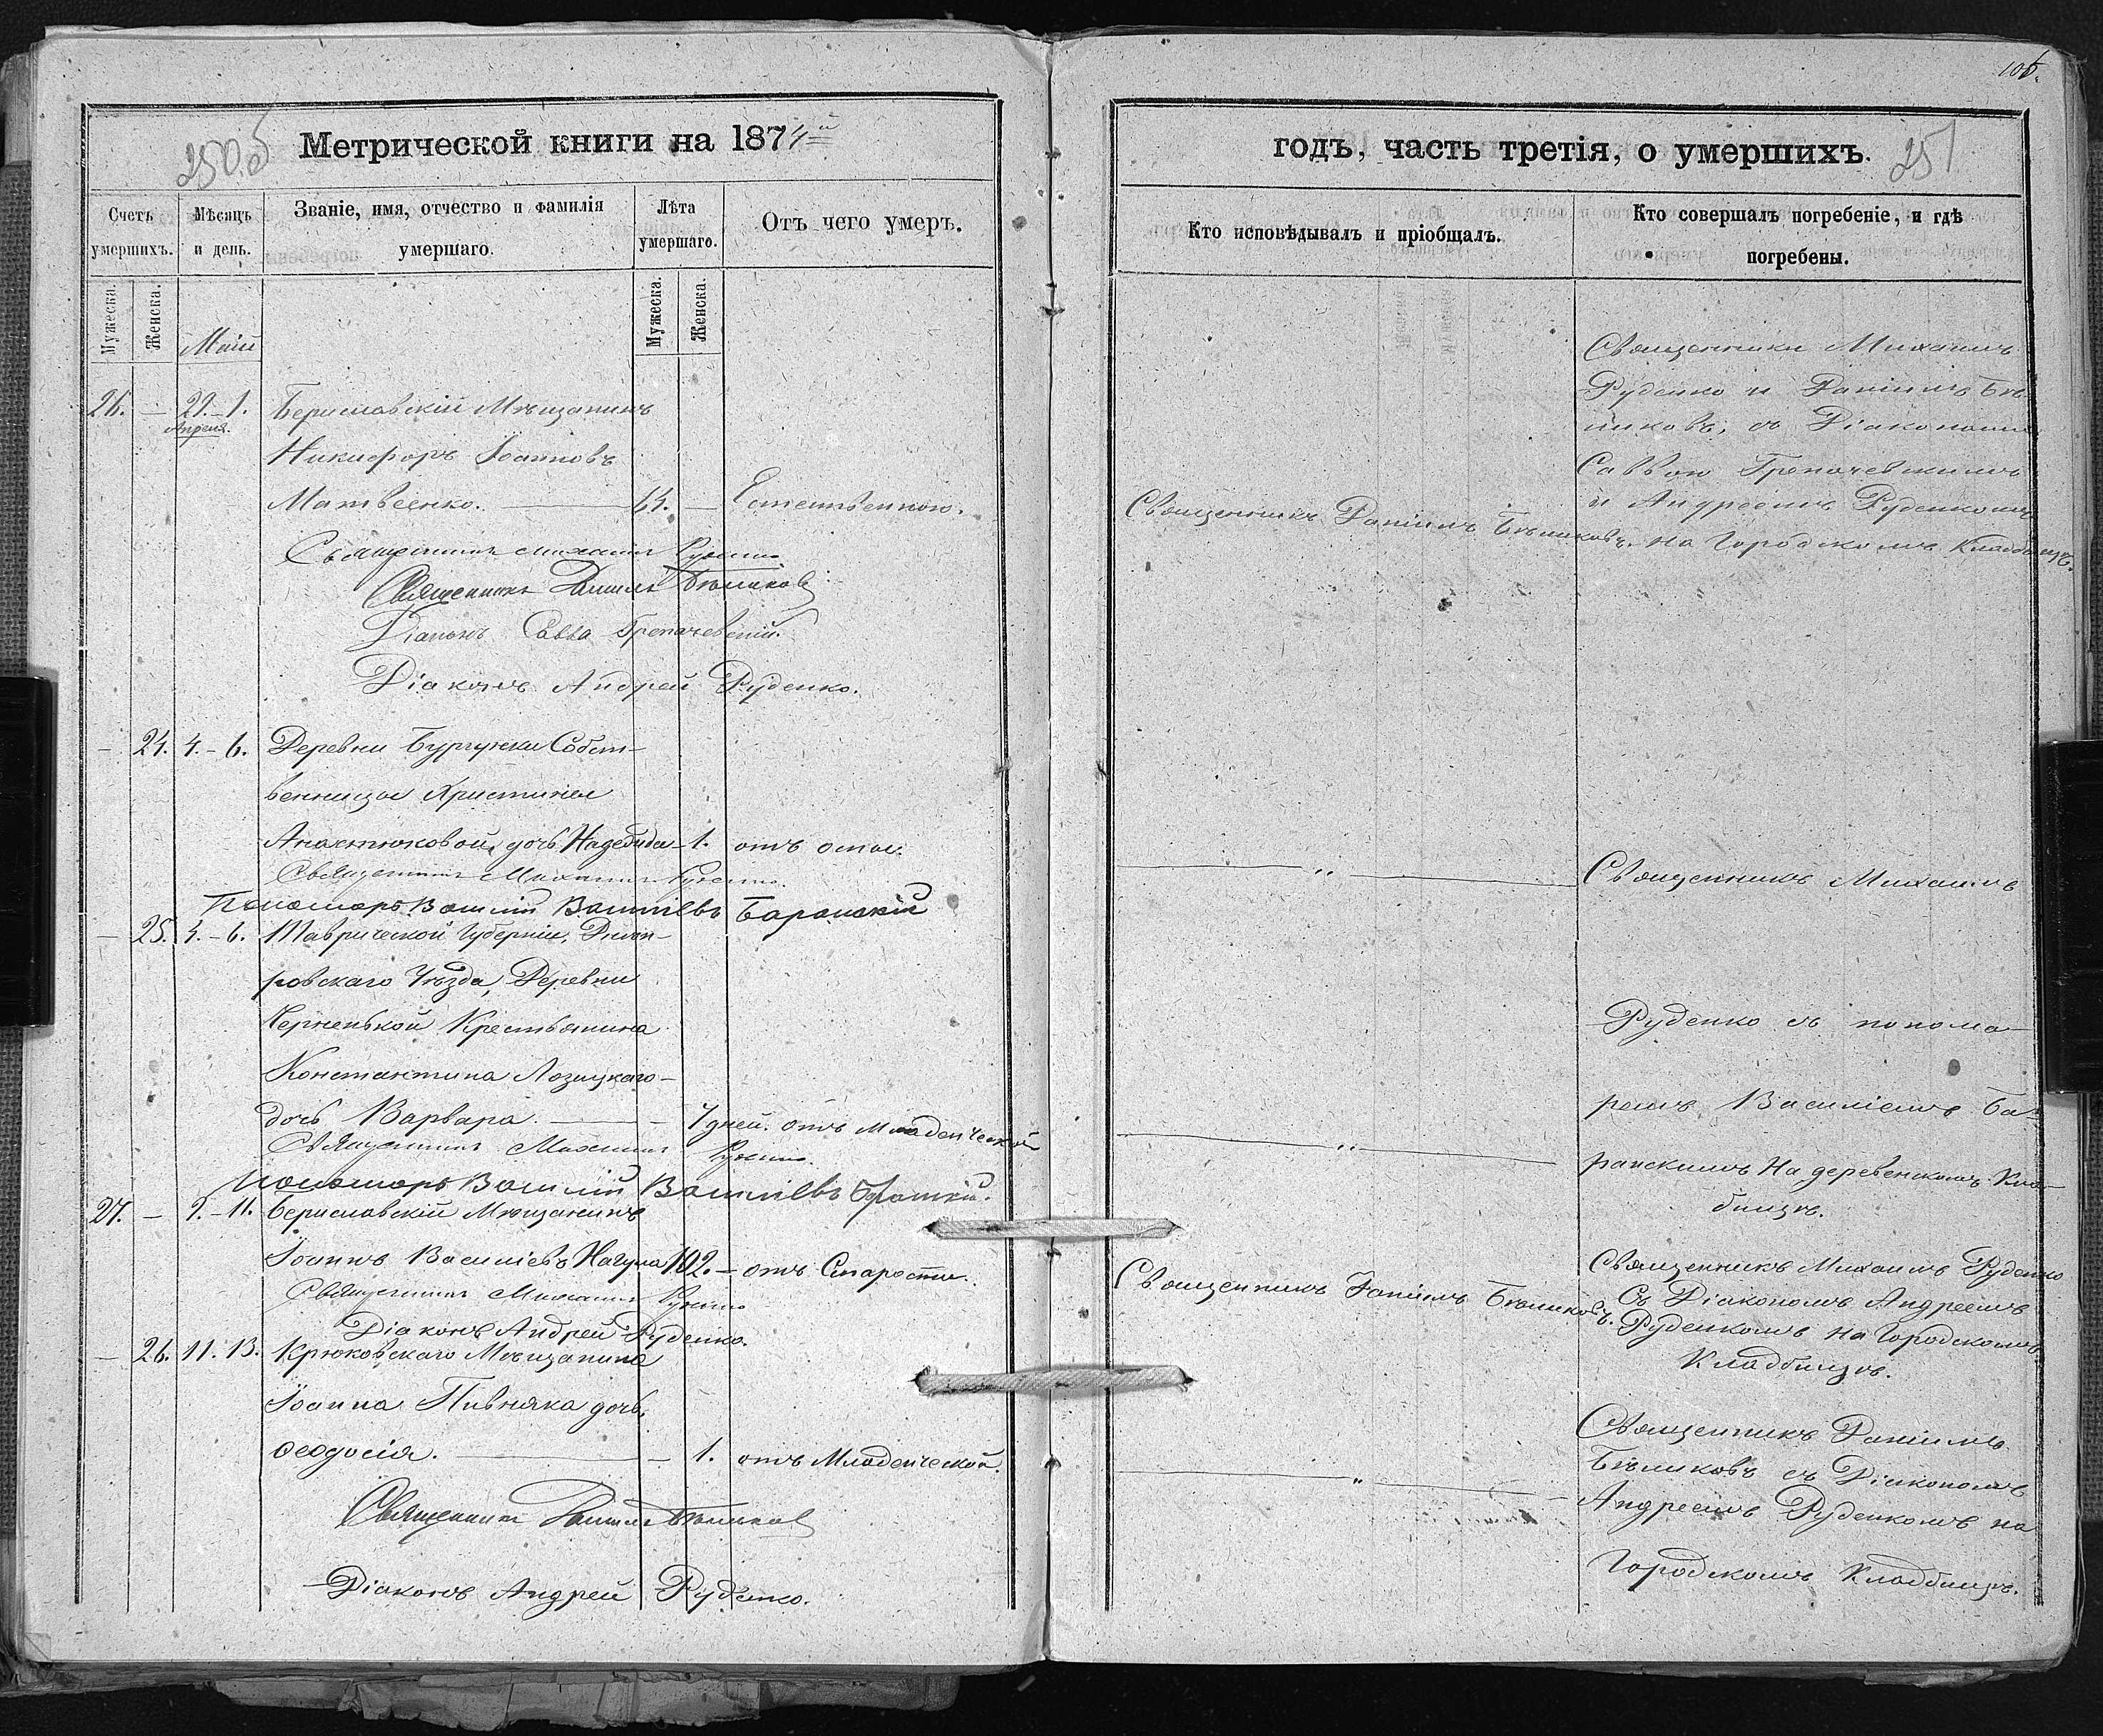 250об
Метрической книги на 1874й
Счетъ умершихъ.
Мѣсяцъ и день.
Званіе, имя, отчество и фамилія умершаго.
Лѣта умершаго.
Отъ чего умеръ.
Мужеска.
Женска.
Маій
Мужеска.
Женска.
26. — 29.-1. Бериславскій Мѣщанинъ
Апреля.
Никифоръ Іоанновъ
Матвеенко. — Естественною.
Священникъ Михаилъ Руденко
Священникъ Даніилъ Бѣликовъ
Діаконъ Савва Грепачевскій.
Діаконъ Андрей Руденко.
— 24. 4.-6. Деревни Бургунки Собст-
венницы Христины
дочь Надежда — 1. отъ оспы.
Священникъ Михаилъ Руденко.
Пономарь Василій Васильевъ Баранскій
— 25. 4.-6. Таврической Губерніи, Днѣп-
ровскаго Уѣзда, Деревни
Черненькой Крестьянина
Константина Лозицкаго
дочь Варвара. — 7 дней. отъ Младенческой
Священникъ Михаилъ Руденко.
Пономарь Василій Васильевъ Баранскій.
27. — 9.-11. Бериславскій Мѣщанинъ
Іоаннъ Василіевъ Нагула 102. — отъ Старости.
Священникъ Михаилъ Руденко
Діаконъ Андрей Руденко.
— 26. 11.13. Крюковскаго Мѣщанина
Іоанна Пивняка дочь
Ѳеодосія. — — 1. отъ Младенческой.
Священникъ Даніилъ Бѣликовъ
Діаконъ Андрей Руденко.
106.
годъ, часть третія, о умершихъ.
251
Кто исповѣдывалъ и пріобщалъ.
Кто совершалъ погребеніе, и гдѣ погребены.
Священники Михаилъ
Руденко и Даніилъ Бѣ-
ликовъ, съ Діаконами
Саввою Грепачевскимъ
и Андреемъ Руденкомъ
Священникъ Даніилъ Бѣликовъ. на Городскомъ Кладбищѣ.
— „ — Священникъ Михаилъ
Руденко съ понома-
ремъ Василіемъ Ба-
— „ — ранскимъ На деревенскомъ Клад-
бищѣ.
Священникъ Михаилъ Руденко
Священникъ Даніилъ Бѣликовъ. Съ Діакономъ Андреемъ
Руденкомъ на Городскомъ
Кладбищѣ.
Священникъ Даніилъ
Бѣликовъ съ Діакономъ
— „ — Андреемъ Руденкомъ на
Городскомъ Кладбищѣ.